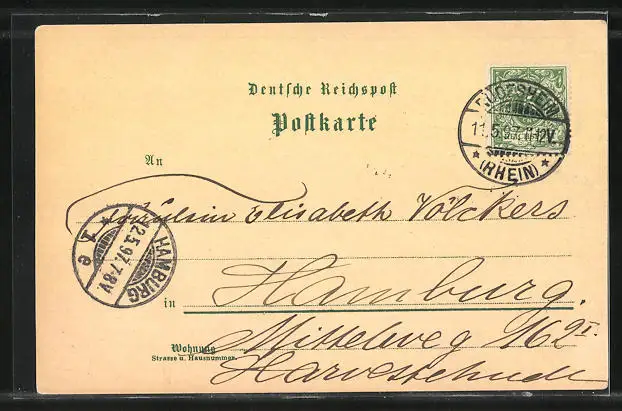 Deutsche Reichspost
Postkarte
RÜDESHEIM
11.5.97. 11-12V.
* (RHEIN) *
An
Fräulein Elisabeth Völckers
HAMBURG
12.5.97. 7-8V.
* 1 e
in Hamburg.
Wohnung
Strasse u. Hausnummer.
Mittelweg 162 I.
Harvestehude